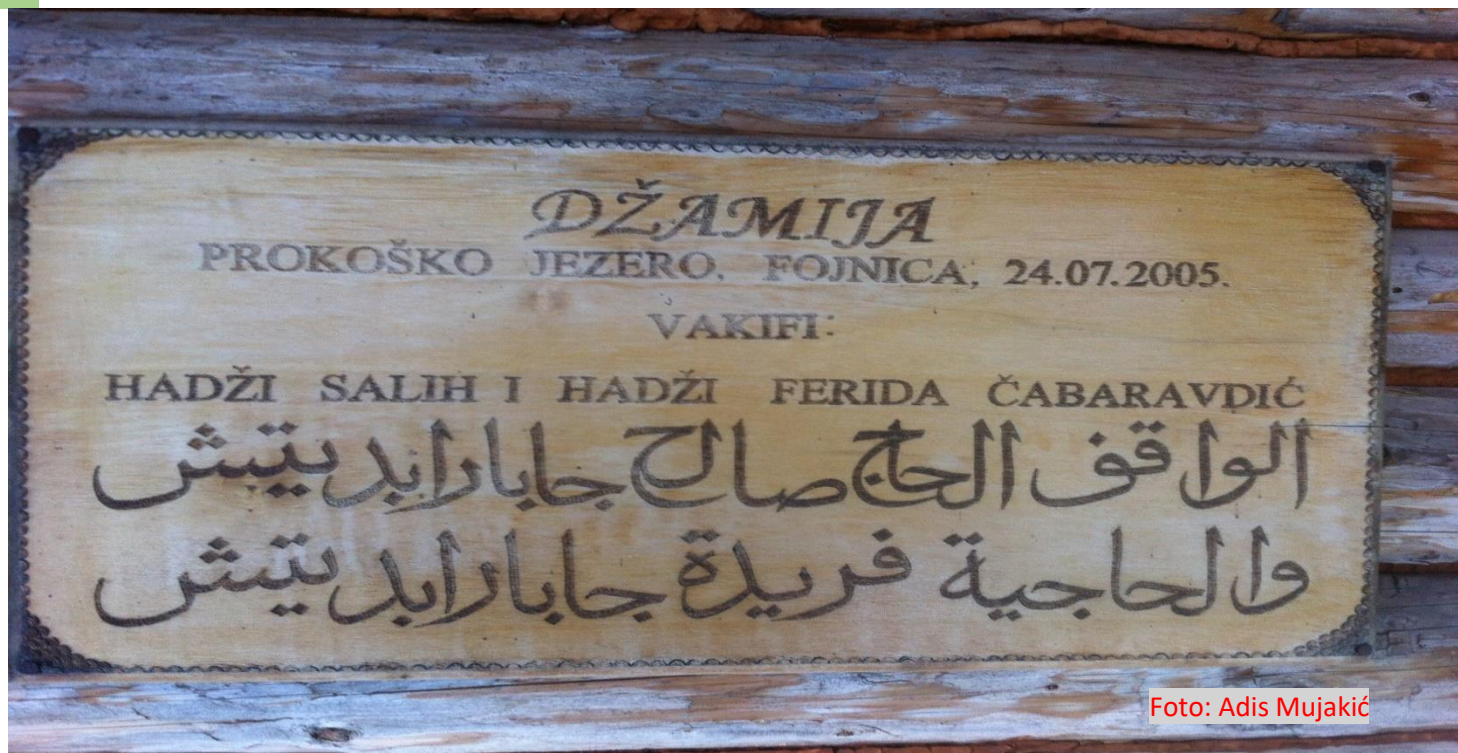 DŽAMIJA
PROKOŠKO JEZERO, FOJNICA, 24.07.2005.
VAKIFI:
HADŽI SALIH I HADŽI FERIDA ČABARAVDIĆ
الواقف الحاج صالح جابارابديتش
والحاجية فريدة جابارابديتش
Foto: Adis Mujakić